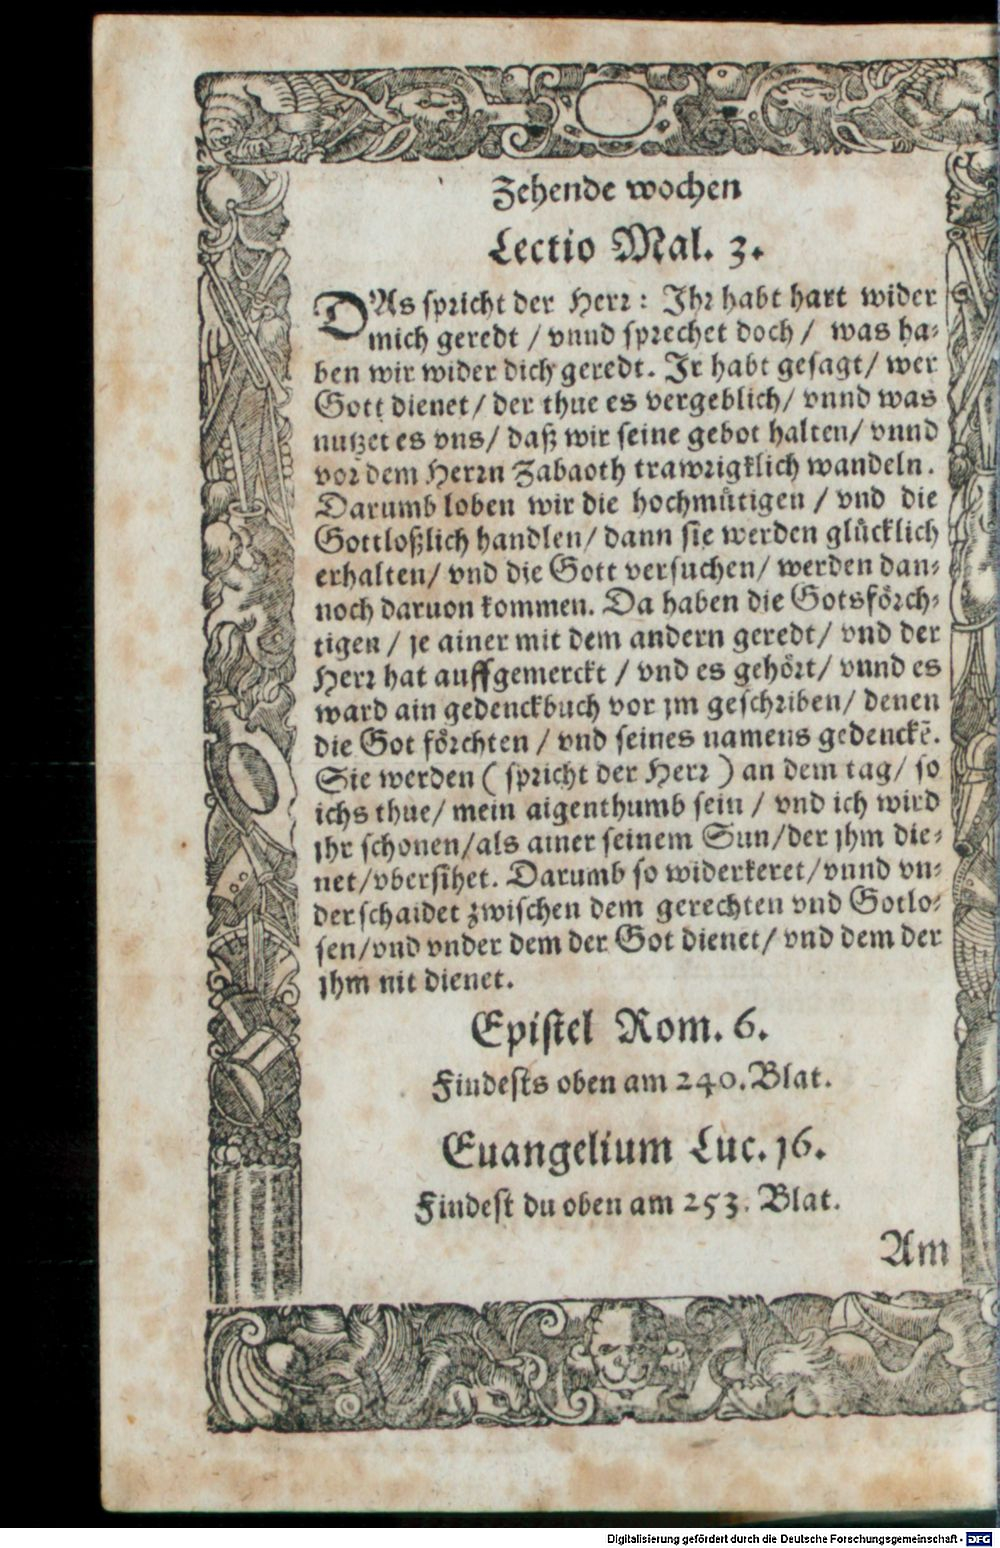 Zehende wochen
Lectio Mal. 3.
DAs spricht der Herr: Ihr habt hart wider
mich geredt / vnnd sprechet doch / was ha-
ben wir wider dich geredt. Ir habt gesagt / wer
Gott dienet / der thue es vergeblich / vnnd was
nutzet es vns / daß wir seine gebot halten / vnnd
vor dem Herrn Zabaoth trawrigklich wandeln.
Darumb loben wir die hochmütigen / vnd die
Gottloßlich handlen / dann sie werden glücklich
erhalten / vnd die Gott versuchen / werden dan-
noch daruon kommen. Da haben die Gotsförch-
tigen / je ainer mit dem andern geredt / vnd der
Herr hat auffgemerckt / vnd es gehört / vnnd es
ward ain gedenckbuch vor jm geschriben / denen
die Got förchten / vnd seines namens gedenckẽ.
Sie werden ( spricht der Herr ) an dem tag / so
ichs thue / mein aigenthumb sein / vnd ich wird
jhr schonen / als ainer seinem Sun / der jhm die-
net / vbersihet. Darumb so widerkeret / vnnd vn-
derschaidet zwischen dem gerechten vnd Gotlo-
sen / vnd vnder dem der Got dienet / vnd dem der
jhm nit dienet.
Epistel Rom. 6.
Findests oben am 240. Blat.
Euangelium Luc. 16.
Findest du oben am 253. Blat.
Am
Digitalisierung gefördert durch die Deutsche Forschungsgemeinschaft - DFG